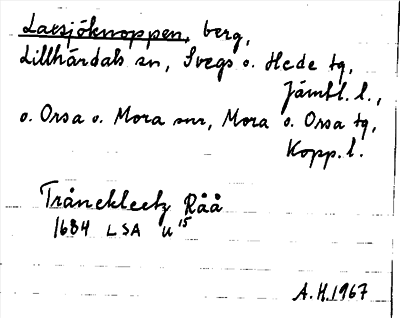 Larsjöknoppen, berg,
Lillhärdals sn, Svegs o. Hede tg,
Jämtl. l.,
o. Orsa o. Mora snr, Mora o. Orsa tg,
Kopp. l.
Trånekleetz Råå
1684 LSA U 15
A.H. 1967